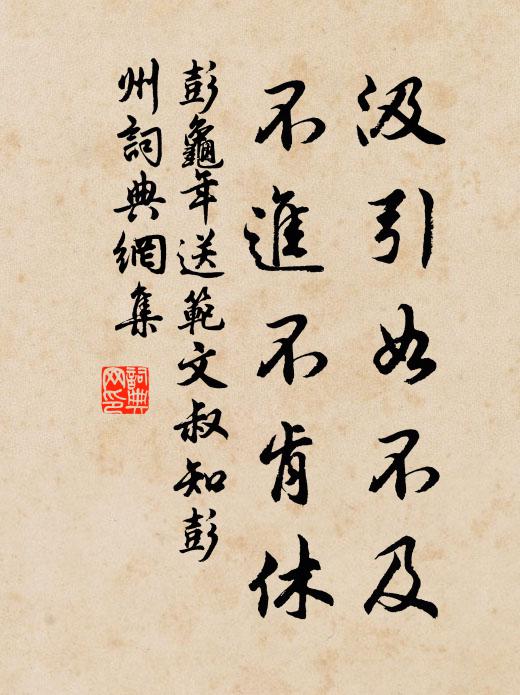 汲引如不及
不進不肯休
彭龜年送範文叔知彭
州詞典網集
詞典
网印